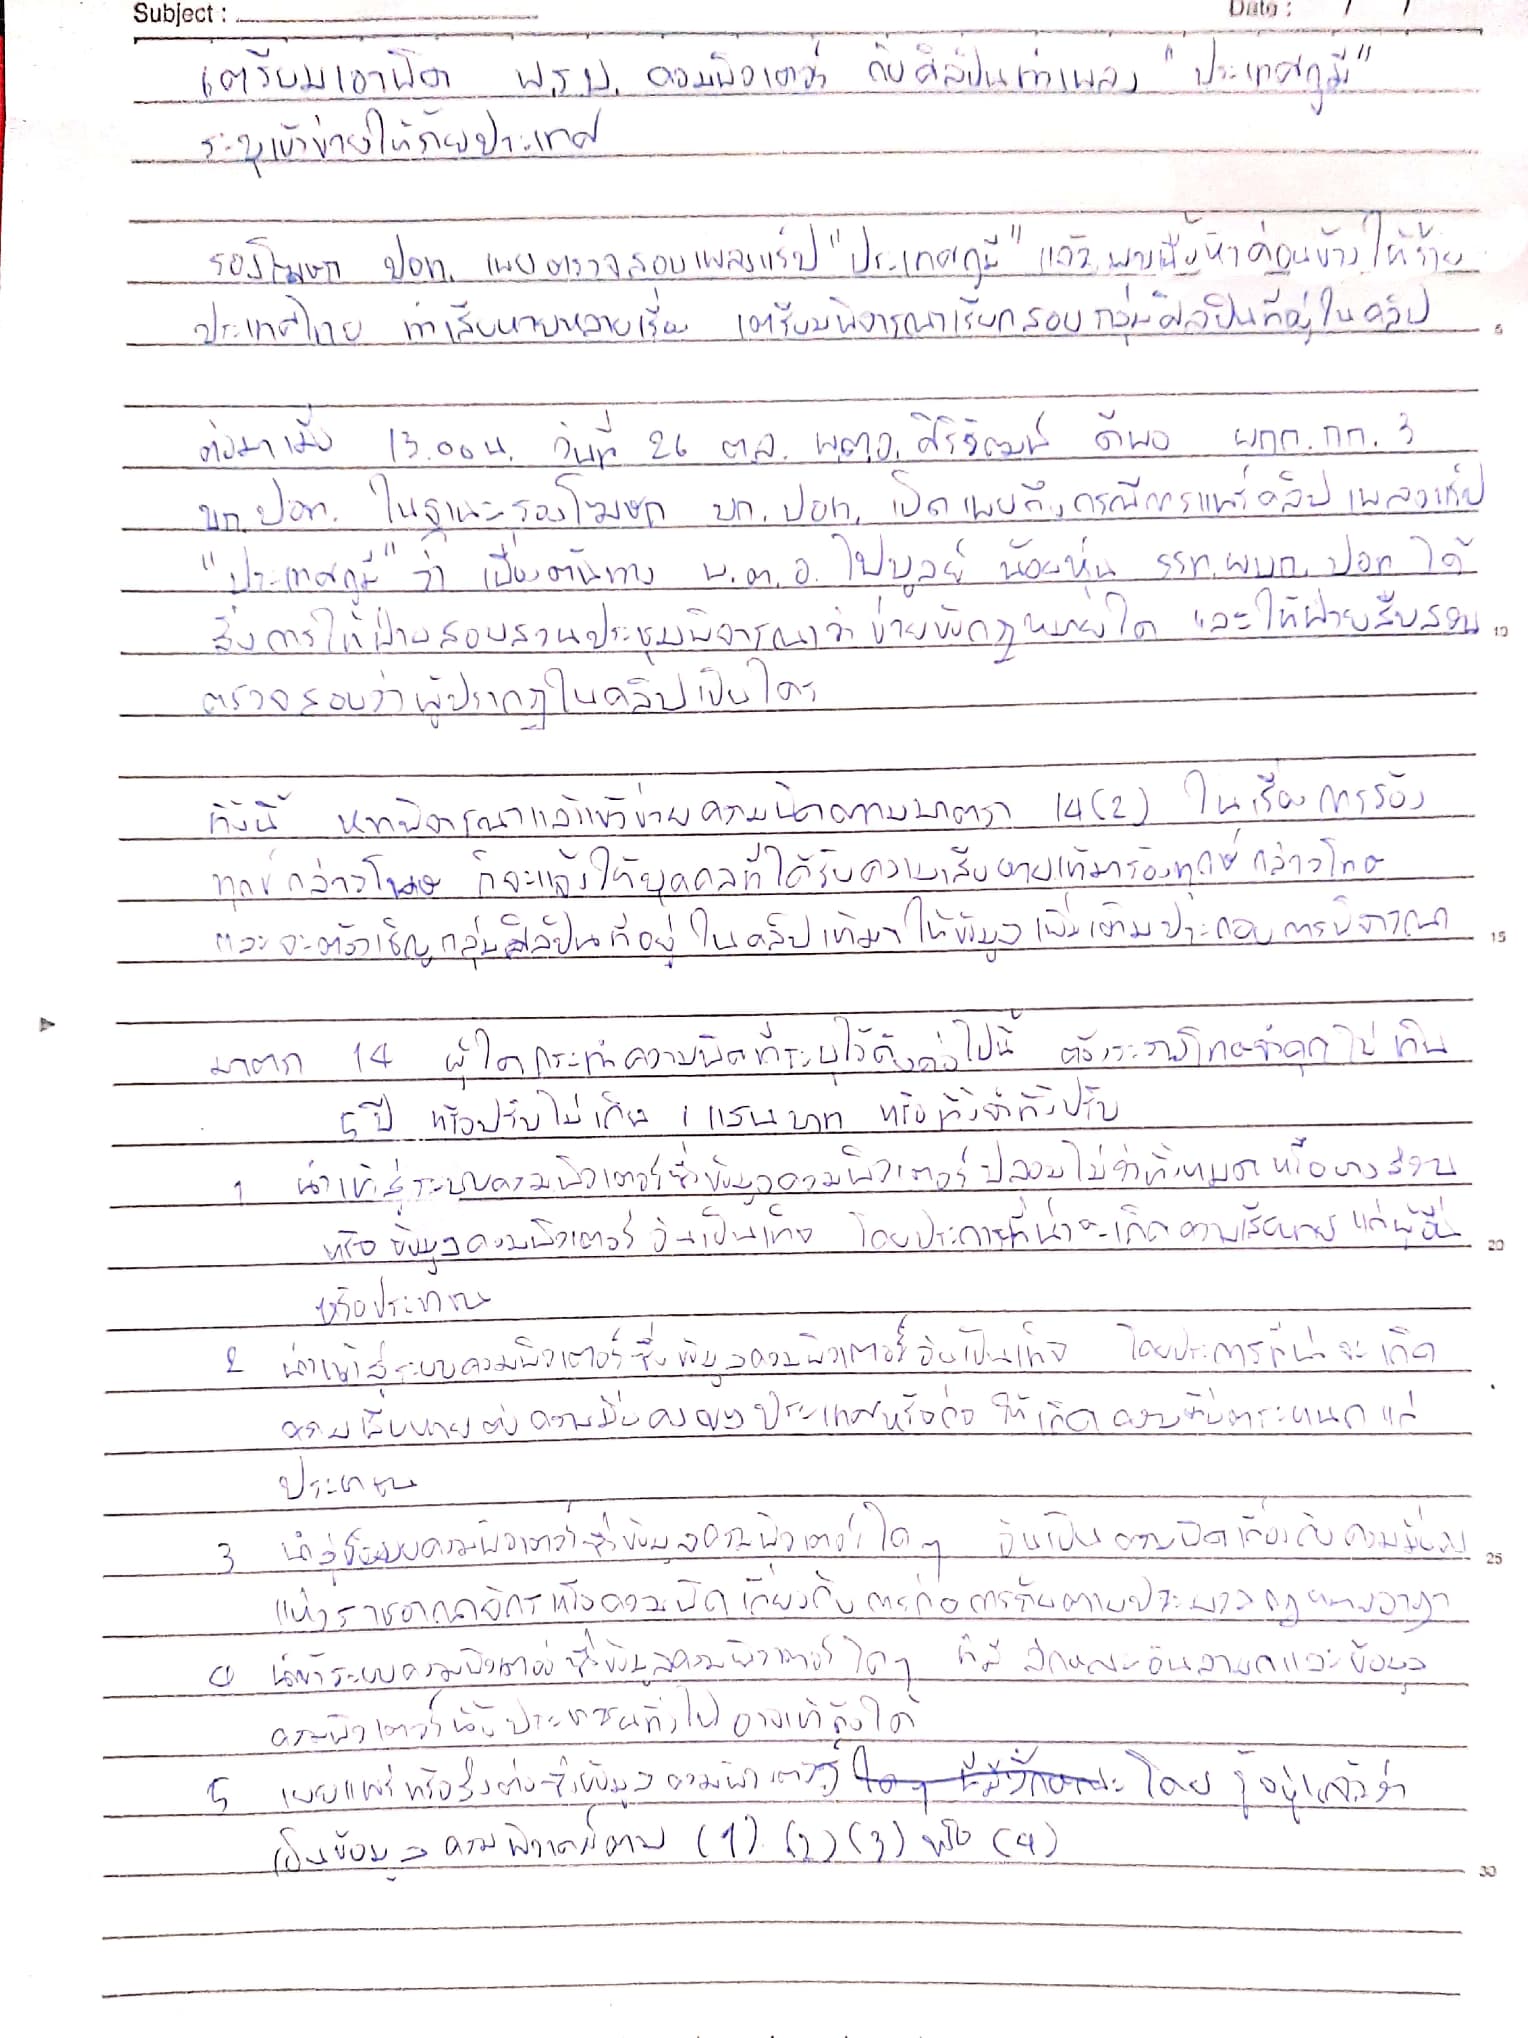 Subject :
Date : / /
เตรียมเอาผิด พ.ร.บ. คอมพิวเตอร์ กับศิลปินทำเพลง "ประเทศกูมี"
ระบุเข้าข่ายให้ร้ายประเทศ
รองโฆษก ปอท. เผยตรวจสอบเพลงแร็ป "ประเทศกูมี" แล้ว พบเนื้อหาค่อนข้างให้ร้าย
ประเทศไทย ทำเสียหายหลายเรื่อง เตรียมพิจารณาเรียกสอบกลุ่มศิลปินที่อยู่ในคลิป
5
ต่อมาเมื่อ 13.00 น. วันที่ 26 ต.ค. พ.ต.อ.ศิริวัฒน์ ดีพอ ผกก.กก. 3
บก.ปอท. ในฐานะรองโฆษก บก.ปอท. เปิดเผยถึงกรณีการแพร่คลิปเพลงแร็ป
"ประเทศกูมี" ว่า เบื้องต้นทาง พ.ต.อ. ไพบูลย์ น้อยหุ่น รรท.ผบก.ปอท ได้
สั่งการให้ฝ่ายสอบสวนประชุมพิจารณาว่าข่ายข้อกฎหมายใด และให้ฝ่ายสืบสวน
10
ตรวจสอบว่าผู้ปรากฏในคลิปเป็นใคร
ทั้งนี้ หากพิจารณาแล้วเข้าข่ายความผิดตามมาตรา 14(2) ในเรื่องการร้อง
ทุกข์กล่าวโทษ ก็จะแจ้งให้บุคคลที่ได้รับความเสียหายเข้ามาร้องทุกข์กล่าวโทษ
และจะต้องเชิญกลุ่มศิลปินที่อยู่ในคลิปเข้ามาให้ข้อมูลเพิ่มเติมประกอบการพิจารณา
15
มาตรา 14 ผู้ใดกระทำความผิดที่ระบุไว้ดังต่อไปนี้ ต้องระวางโทษจำคุกไม่เกิน
5 ปี หรือปรับไม่เกิน 1 แสนบาท หรือทั้งจำทั้งปรับ
1 นำเข้าสู่ระบบคอมพิวเตอร์ซึ่งข้อมูลคอมพิวเตอร์ปลอมไม่ว่าทั้งหมดหรือบางส่วน
หรือข้อมูลคอมพิวเตอร์อันเป็นเท็จ โดยประการที่น่าจะเกิดความเสียหายแก่ผู้อื่น
20
หรือประชาชน
2 นำเข้าสู่ระบบคอมพิวเตอร์ซึ่งข้อมูลคอมพิวเตอร์อันเป็นเท็จ โดยประการที่น่าจะเกิด
ความเสียหายต่อความมั่นคงของประเทศหรือก่อให้เกิดความตื่นตระหนกแก่
ประชาชน
3 นำสู่ระบบคอมพิวเตอร์ซึ่งข้อมูลคอมพิวเตอร์ใดๆ อันเป็นความผิดเกี่ยวกับความมั่นคง
25
แห่งราชอาณาจักรหรือความผิดเกี่ยวกับการก่อการร้ายตามประมวลกฎหมายอาญา
4 นำเข้าระบบคอมพิวเตอร์ซึ่งข้อมูลคอมพิวเตอร์ใดๆ ที่มีลักษณะอันลามกและข้อมูล
คอมพิวเตอร์นั้นประชาชนทั่วไปอาจเข้าถึงได้
5 เผยแพร่หรือส่งต่อซึ่งข้อมูลคอมพิวเตอร์ ใดๆ ที่มีลักษณะ โดยรู้อยู่แล้วว่า
เป็นข้อมูลคอมพิวเตอร์ตาม (1) (2) (3) หรือ (4)
30